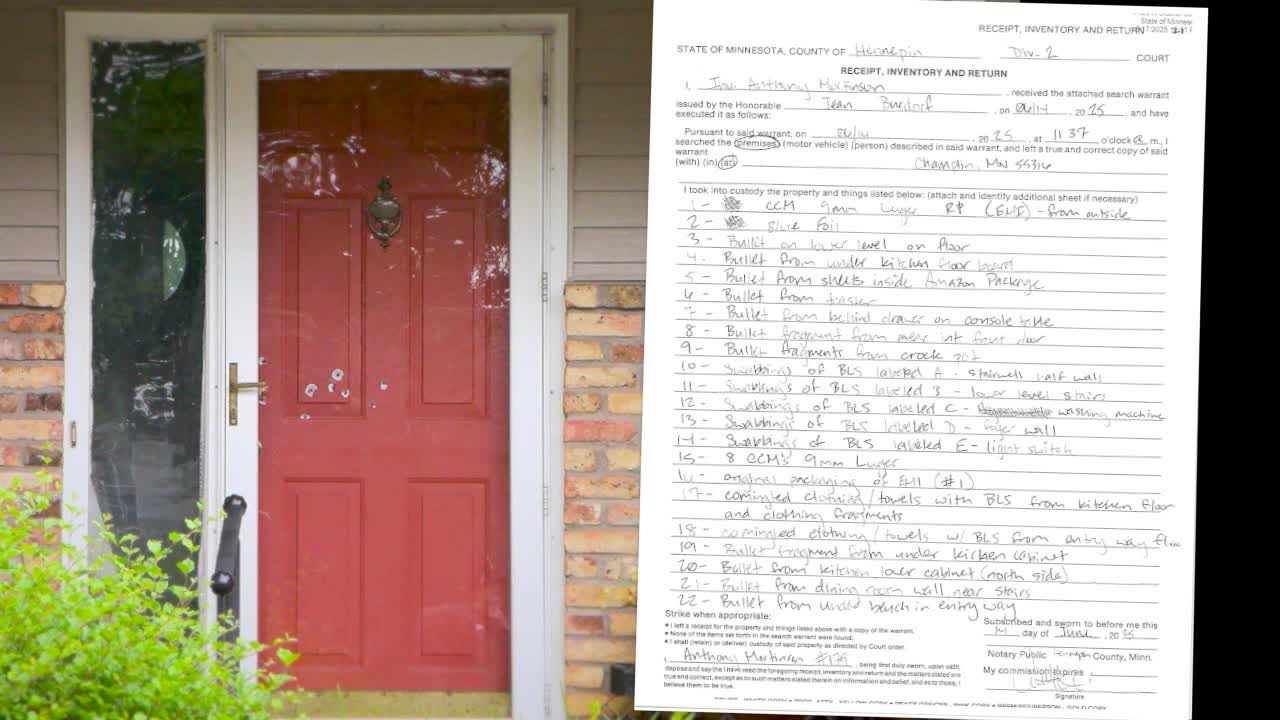 State of Minnes
RECEIPT, INVENTORY AND RETURN
STATE OF MINNESOTA, COUNTY OF Hennepin Div. 2 COURT
RECEIPT, INVENTORY AND RETURN
I, Anthony Mortinson, received the attached search warrant
issued by the Honorable Jean Burdorf, on 06/14, 2025, and have
executed it as follows:
Pursuant to said warrant, on 06/14, 2025, at 1137 o'clock a m., I
searched the (premises) (motor vehicle) (person) described in said warrant, and left a true and correct copy of said
warrant
(with) (in) (at) Champlin, MN 55316
I took into custody the property and things listed below: (attach and identify additional sheet if necessary)
1- CCM 9mm Luger RP (EMI) - from outside
2- Blue Foil
3- Bullet on lower level on floor
4- Bullet from under kitchen floor board
5- Bullet from sheets inside Amazon Package
6- Bullet from
7- Bullet from behind drawer on console table
8- Bullet fragment from near int front door
9- Bullet fragments from crock pot
10- Swabbings of BLS labeled A - stairwell half wall
11- Swabbings of BLS labeled B - lower level stairs
12- Swabbings of BLS labeled C - washing machine
13- Swabbings of BLS labeled D - foyer wall
14- Swabbings of BLS labeled E - light switch
15- 8 CCM's 9mm Luger
16- original packaging of EMI (#1)
17- comingled clothing/towels with BLS from kitchen floor
and clothing fragments
18- comingled clothing/towels w/ BLS from entry way floor
19- Bullet fragment from under kitchen cabinet
20- Bullet from kitchen lower cabinet (north side)
21- Bullet from dining room wall near stairs
22- Bullet from under bench in entry way
Strike when appropriate:
• I left a receipt for the property and things listed above with a copy of the warrant.
• None of the items set forth in the search warrant were found.
• I shall (retain) or (deliver) custody of said property as directed by Court order.
I, Anthony Mortinson, being first duly sworn, upon oath,
depose and say that I have read the foregoing receipt, inventory and return and the matters stated are
true and correct, except as to such matters stated therein on information and belief, and as to those, I
believe them to be true.
Subscribed and sworn to before me this
day of June, 2025
Notary Public Hennepin County, Minn.
My commission expires
Signature